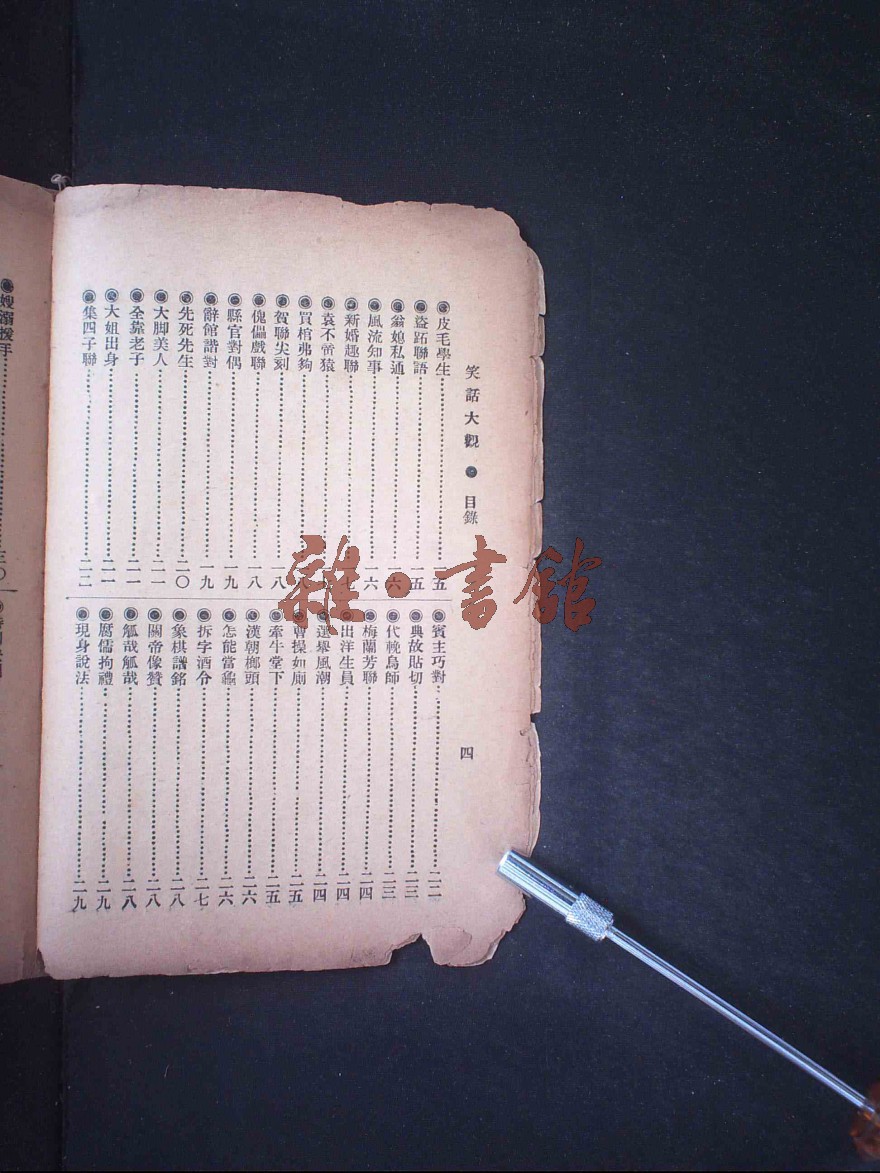 笑話大觀 ◉ 目錄
四
◉皮毛學生⋯⋯一五
◉盜跖聯語⋯⋯一五
◉翁媳私通⋯⋯一六
◉風流知事⋯⋯一六
◉新婚趣聯⋯⋯七
◉袁不啻猿⋯⋯
◉買棺弗夠⋯⋯八
◉賀聯尖刻⋯⋯一八
◉傀儡戲聯⋯⋯一八
◉縣官對偶⋯⋯一九
◉辭館諧對⋯⋯一九
◉先死先生⋯⋯二〇
◉大脚美人⋯⋯二一
◉全靠老子⋯⋯二一
◉大姐出身⋯⋯二一
◉集四子聯⋯⋯二二
◉賓主巧對⋯⋯二二
◉典故貼切⋯⋯二三
◉代輓烏師⋯⋯二三
◉梅蘭芳聯⋯⋯二四
◉出洋生員⋯⋯二四
◉選舉風潮⋯⋯二四
◉曹操如廁⋯⋯二五
◉牽牛堂下⋯⋯二五
◉漢朝榔頭⋯⋯二六
◉怎能當龜⋯⋯二六
◉拆字酒令⋯⋯二七
◉象棋譜銘⋯⋯二八
◉關帝像贊⋯⋯二八
◉觚哉觚哉⋯⋯二八
◉腐儒拘禮⋯⋯二九
◉現身說法⋯⋯二九
◉嫂溺援手⋯⋯三〇
雜·書館